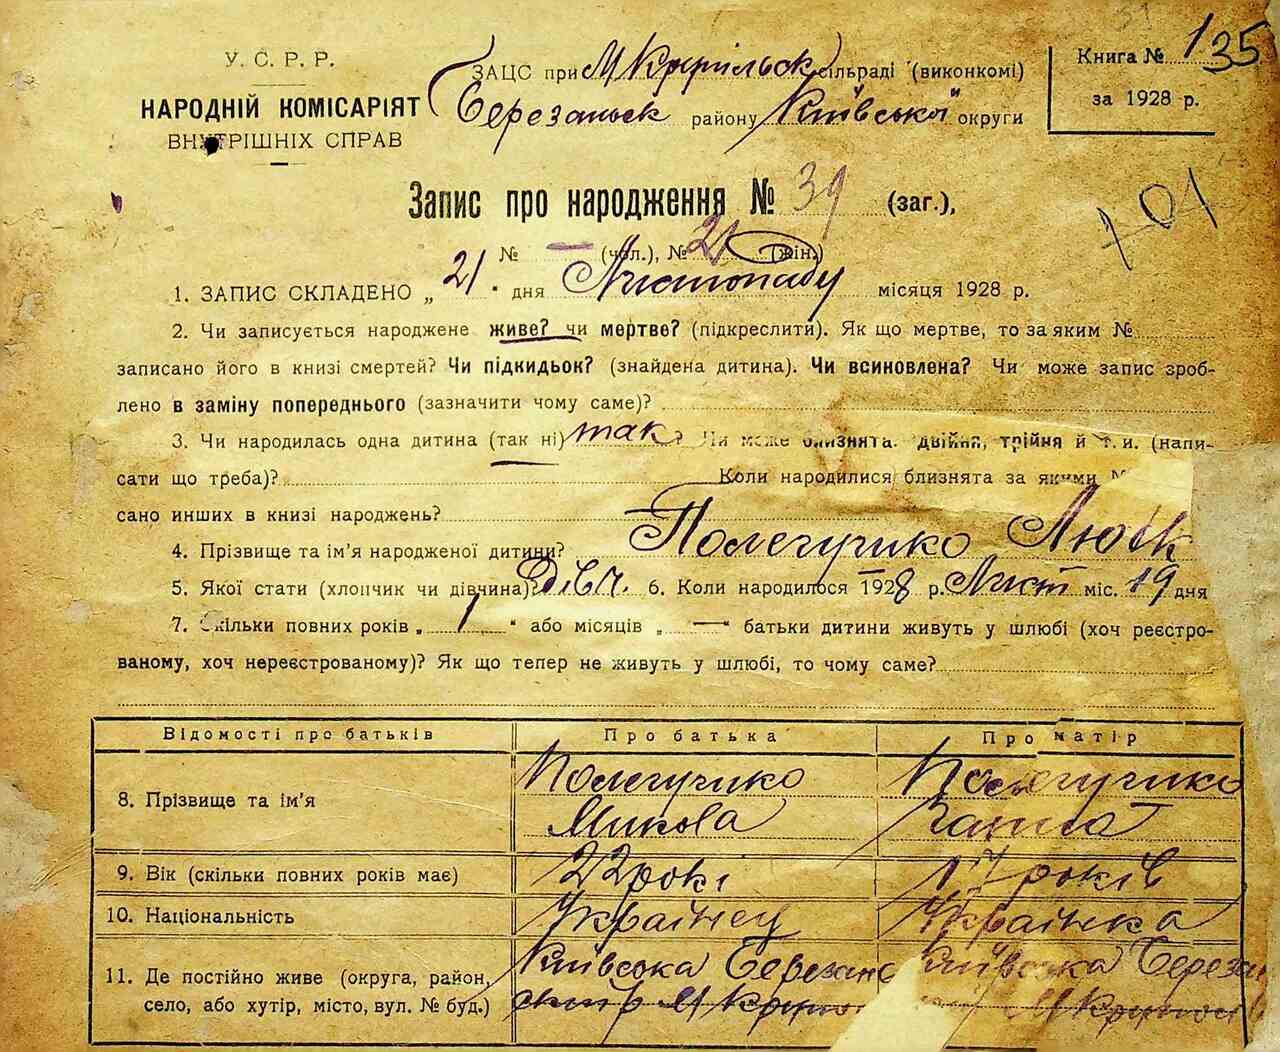 У. С. Р. Р.
НАРОДНІЙ КОМІСАРІЯТ
ВНУТРІШНІХ СПРАВ
ЗАЦС при сільраді (виконкомі)
Березанськ району Київської округи
Книга № 135
за 1928 р.
Запис про народження № 39 (заг.),
№ — (чол.), № 21 (жін.)
701
1. ЗАПИС СКЛАДЕНО „ 21 " дня Листопаду місяця 1928 р.
2. Чи записується народжене живе? чи мертве? (підкреслити). Як що мертве, то за яким №
записано його в книзі смертей? Чи підкидьок? (знайдена дитина). Чи всиновлена? Чи може запис зроб-
лено в заміну попереднього (зазначити чому саме)?
3. Чи народилась одна дитина (так ні) так ? Чи може близнята. двійня, трійня й т. и. (напи-
сати що треба)? Коли народилися близнята за якими
сано инших в книзі народжень?
4. Прізвище та ім'я народженої дитини?
5. Якої стати (хлопчик чи дівчина)? Дівч. 6. Коли народилося 1928 р. Лист міс. 19 дня
7. Скільки повних років „ 1 " або місяців „ — " батьки дитини живуть у шлюбі (хоч реєстро-
ваному, хоч нереєстрованому)? Як що тепер не живуть у шлюбі, то чому саме?
Відомості про батьків Про батька Про матір
8. Прізвище та ім'я
Микола
9. Вік (скільки повних років має) 22 рокі 17 років
10. Національність Українец Українка
11. Де постійно живе (округа, район, Київська Київська
село, або хутір, місто, вул. № буд.)